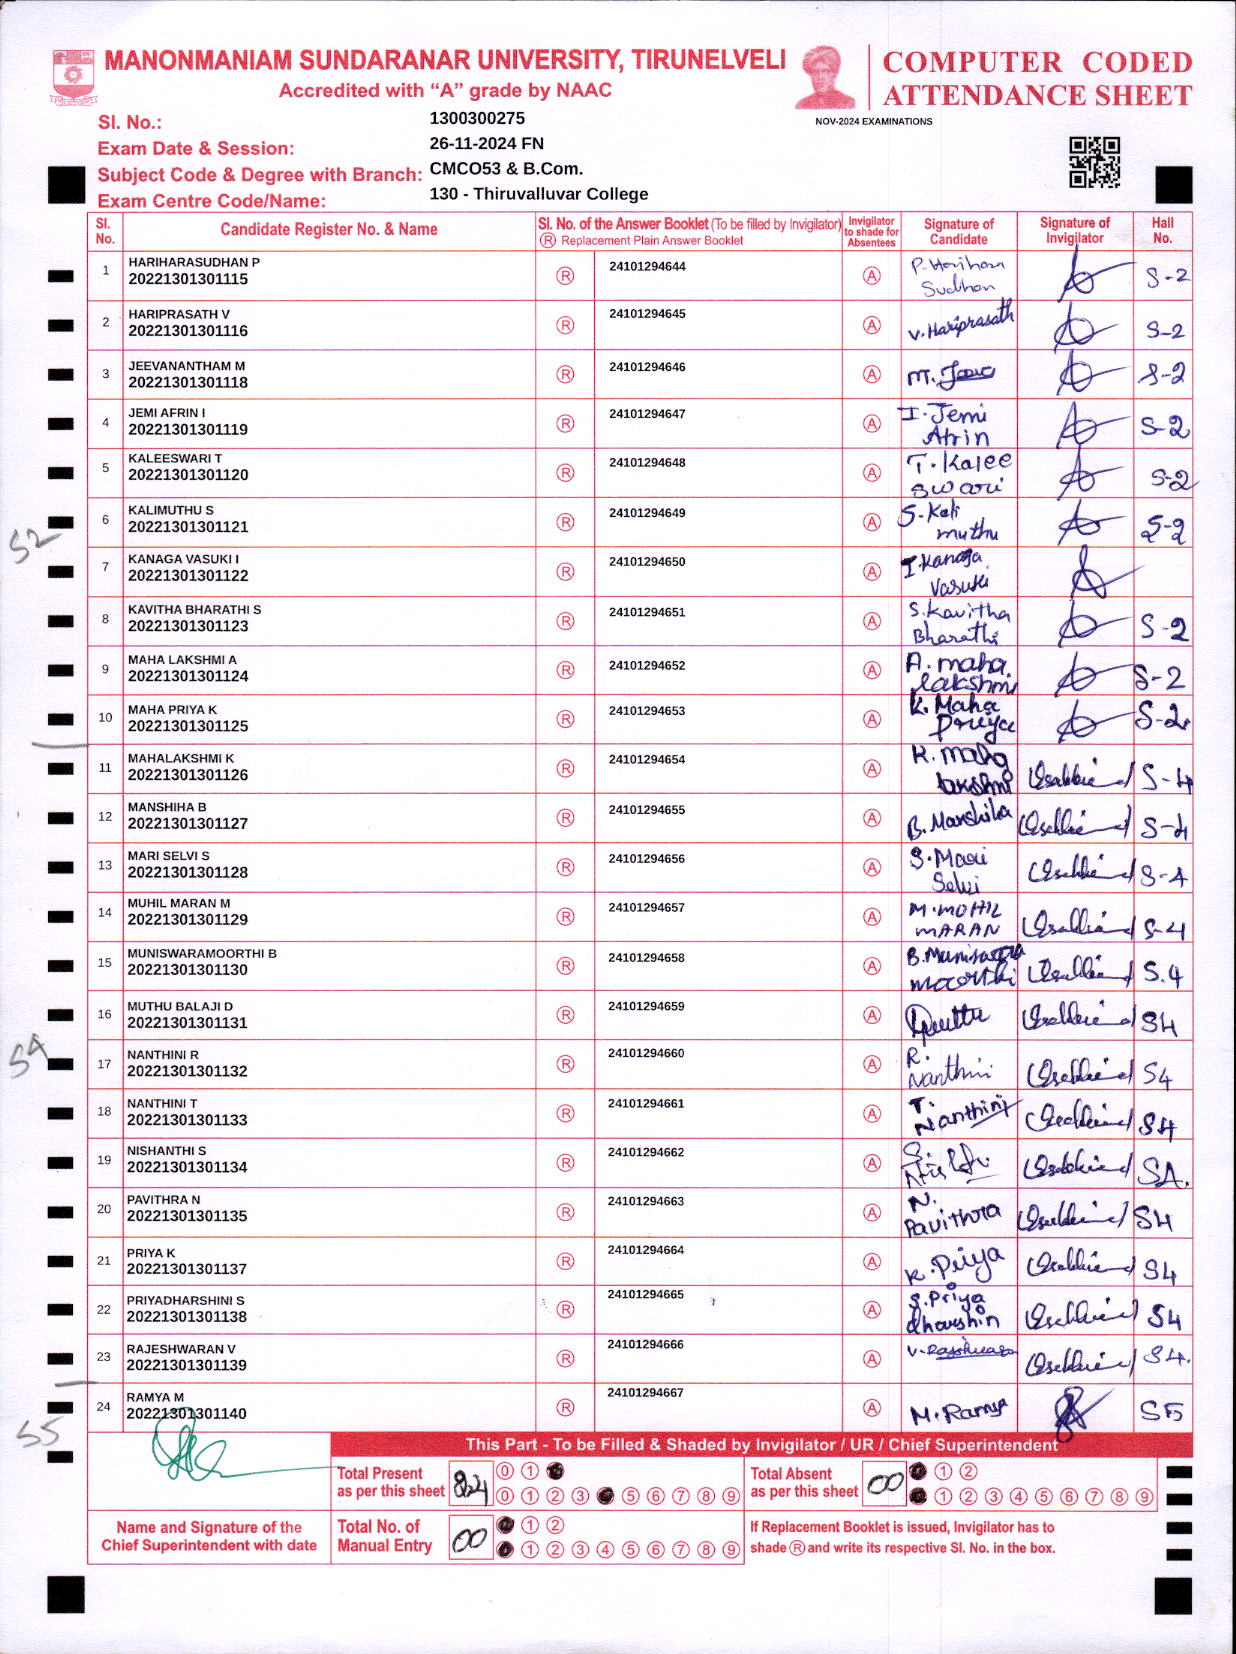 MANONMANIAM SUNDARANAR UNIVERSITY, TIRUNELVELI
Accredited with “A” grade by NAAC
COMPUTER CODED
ATTENDANCE SHEET
NOV-2024 EXAMINATIONS
Sl. No.: 1300300275
Exam Date & Session: 26-11-2024 FN
Subject Code & Degree with Branch: CMCO53 & B.Com.
Exam Centre Code/Name: 130 - Thiruvalluvar College
Sl. No. Candidate Register No. & Name Sl. No. of the Answer Booklet (To be filled by Invigilator) Ⓡ Replacement Plain Answer Booklet Invigilator to shade for Absentees Signature of Candidate Signature of Invigilator Hall No.
1 HARIHARASUDHAN P 20221301301115 Ⓡ 24101294644 Ⓐ P. Harihara Sudhan S-2
2 HARIPRASATH V 20221301301116 Ⓡ 24101294645 Ⓐ V. Hariprasath S-2
3 JEEVANANTHAM M 20221301301118 Ⓡ 24101294646 Ⓐ M. S-2
4 JEMI AFRIN I 20221301301119 Ⓡ 24101294647 Ⓐ I. Jemi Afrin S-2
5 KALEESWARI T 20221301301120 Ⓡ 24101294648 Ⓐ T. Kalee swari S-2
6 KALIMUTHU S 20221301301121 Ⓡ 24101294649 Ⓐ S. Kali muthu S-2
S2
7 KANAGA VASUKI I 20221301301122 Ⓡ 24101294650 Ⓐ I. Kanaga Vasuki
8 KAVITHA BHARATHI S 20221301301123 Ⓡ 24101294651 Ⓐ S. Kavitha Bharathi S-2
9 MAHA LAKSHMI A 20221301301124 Ⓡ 24101294652 Ⓐ A. maha lakshmi S-2
10 MAHA PRIYA K 20221301301125 Ⓡ 24101294653 Ⓐ K. Maha Priya S-2
11 MAHALAKSHMI K 20221301301126 Ⓡ 24101294654 Ⓐ K. maha lakshmi S-4
12 MANSHIHA B 20221301301127 Ⓡ 24101294655 Ⓐ B. Manshiha S-4
13 MARI SELVI S 20221301301128 Ⓡ 24101294656 Ⓐ S. Mari Selvi S-4
14 MUHIL MARAN M 20221301301129 Ⓡ 24101294657 Ⓐ M. MOHIL MARAN S-4
15 MUNISWARAMOORTHI B 20221301301130 Ⓡ 24101294658 Ⓐ B. S.4
16 MUTHU BALAJI D 20221301301131 Ⓡ 24101294659 Ⓐ S4
S4
17 NANTHINI R 20221301301132 Ⓡ 24101294660 Ⓐ R. Nanthini S4
18 NANTHINI T 20221301301133 Ⓡ 24101294661 Ⓐ T. Nanthini S4
19 NISHANTHI S 20221301301134 Ⓡ 24101294662 Ⓐ S. S4.
20 PAVITHRA N 20221301301135 Ⓡ 24101294663 Ⓐ N. Pavithra S4
21 PRIYA K 20221301301137 Ⓡ 24101294664 Ⓐ K. Priya S4
22 PRIYADHARSHINI S 20221301301138 Ⓡ 24101294665 Ⓐ S. Priya dharshin S4
23 RAJESHWARAN V 20221301301139 Ⓡ 24101294666 Ⓐ V. S4.
24 RAMYA M 20221301301140 Ⓡ 24101294667 Ⓐ M. Ramya S5
S5
This Part - To be Filled & Shaded by Invigilator / UR / Chief Superintendent
Total Present as per this sheet 24 ⓪ ① ⓪ ① ② ③ ⑤ ⑥ ⑦ ⑧ ⑨
Total Absent as per this sheet 00 ① ② ① ② ③ ④ ⑤ ⑥ ⑦ ⑧ ⑨
Name and Signature of the Chief Superintendent with date
Total No. of Manual Entry 00 ① ② ① ② ③ ④ ⑤ ⑥ ⑦ ⑧ ⑨
If Replacement Booklet is issued, Invigilator has to shade Ⓡ and write its respective Sl. No. in the box.